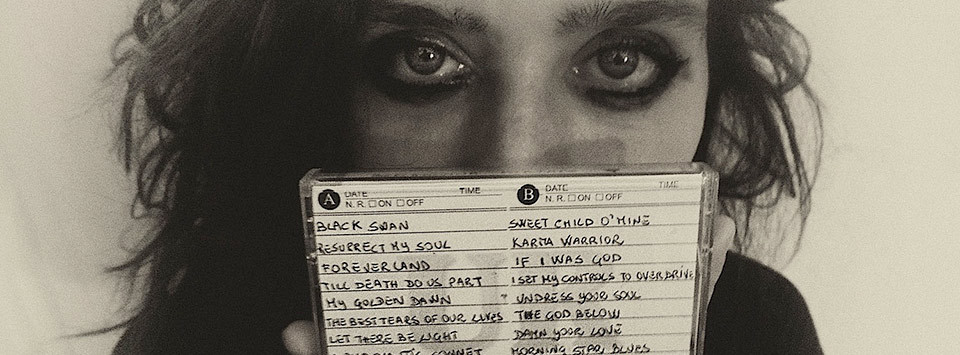 A DATE TIME
N. R. ☐ON ☐OFF
BLACK SWAN
RESURRECT MY SOUL
FOREVERLAND
TILL DEATH DO US PART
MY GOLDEN DAWN
THE BEST TEARS OF OUR LIVES
LET THERE BE LIGHT
B DATE TIME
N. R. ☐ON ☐OFF
SWEET CHILD O'MINE
KARMA WARRIOR
IF I WAS GOD
I SET MY CONTROLS TO OVERDRIVE
UNDRESS YOUR SOUL
THE GOD BELOW
DAMN YOUR LOVE
MORNING STAR BLUES